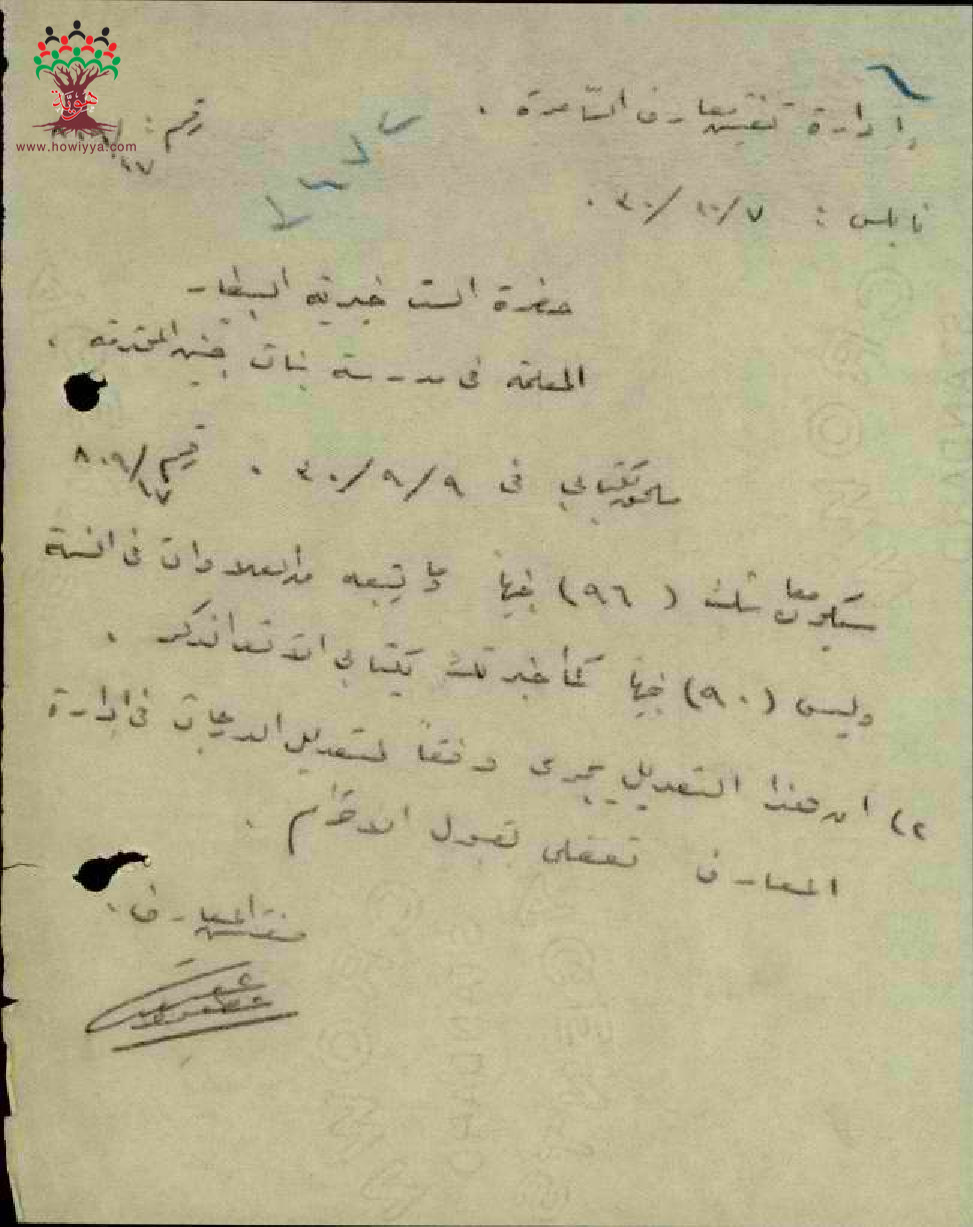 هوية
www.howiyya.com
إدارة تفتيش معارف السّامرة .
رقم :
١٧
نابلس : ٧/١٠/٣٠ .
حضرة الست خيرية البيطار
المعلمة في مدرسة بنات جنين المحترمة .
ملحق بكتابي في ٩/٩/٣٠ . رقم ١٧/٨٠٩
سيكون معاشك (٩٦) جنيهاً وما يتبعه من العلاوات في السنة
وليس (٩٠) جنيهاً كما أخبرتك بكتابي الانف الذكر .
٢) ان هذا التعديل يجري وفقاً لتعديل الدرجات في ادارة
المعارف تفضلي بقبول الاحترام .
مفتش المعارف .